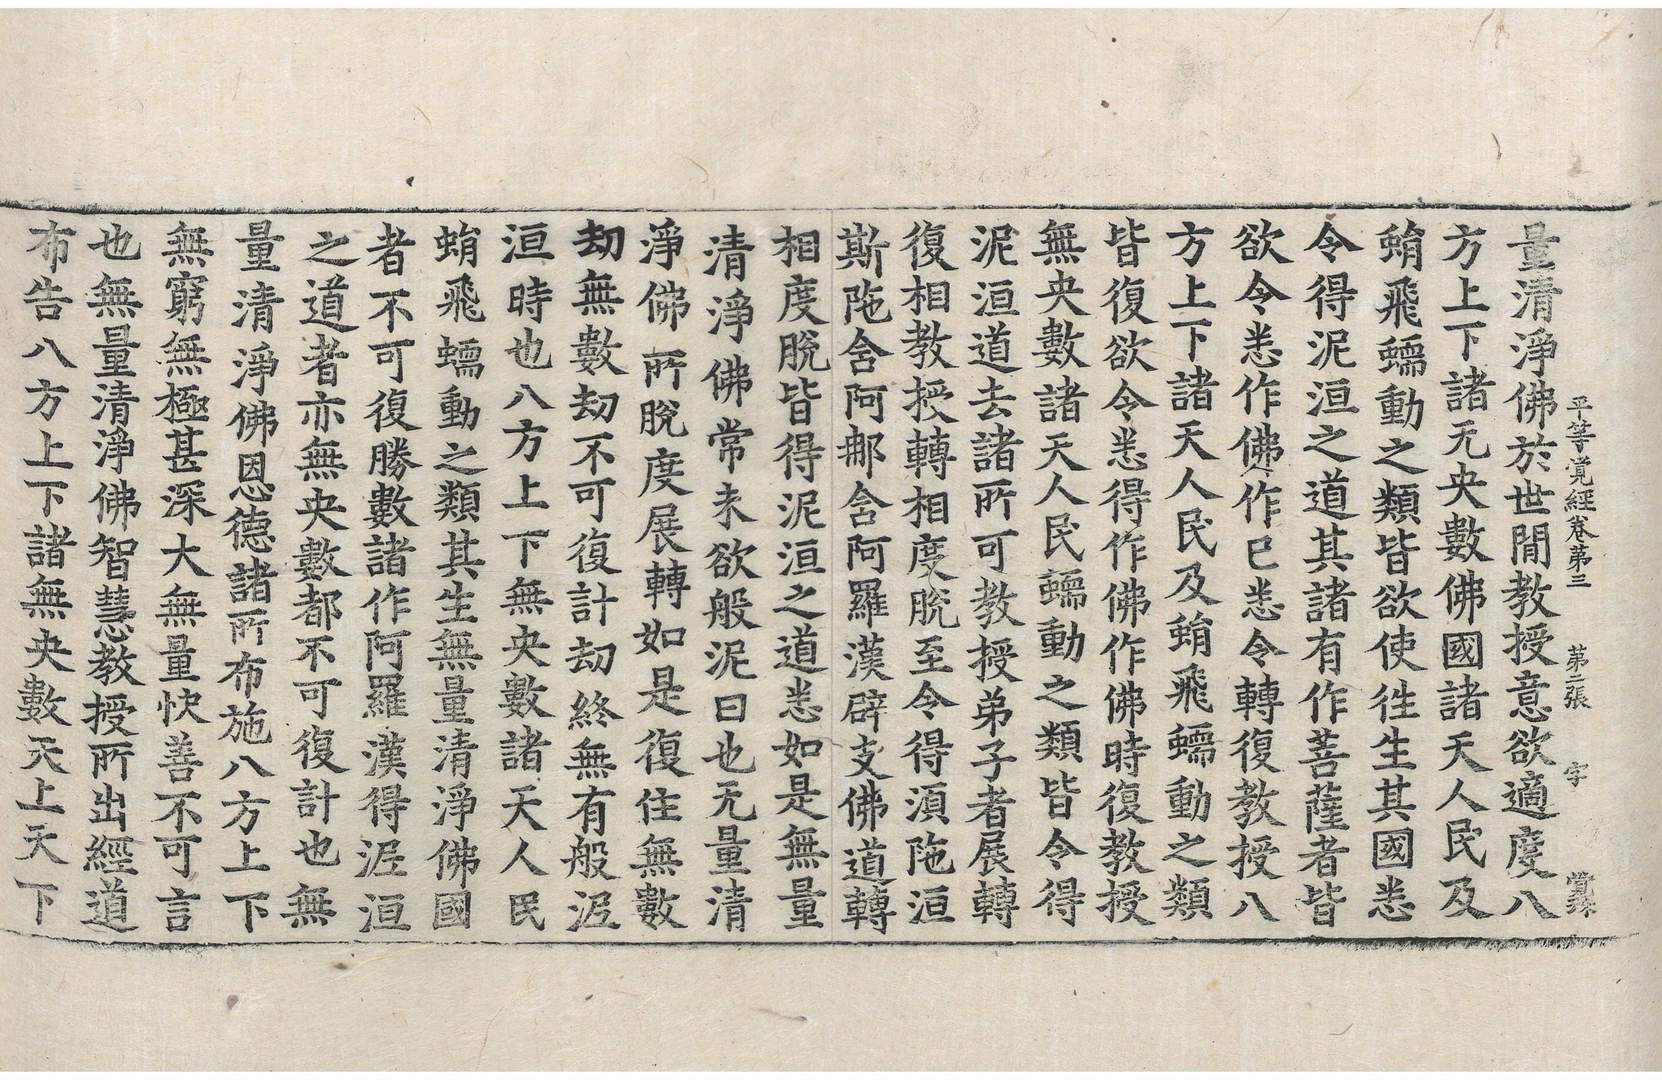 平等覚經卷第三　第二張　字
量清淨佛於世間教授意欲適度八
方上下諸无央數佛國諸天人民及
蜎飛蠕動之類皆欲使徃生其國悉
令得泥洹之道其諸有作菩薩者皆
欲令悉作佛作已悉令轉復教授八
方上下諸天人民及蜎飛蠕動之類
皆復欲令悉得作佛作佛時復教授
無央數諸天人民蠕動之類皆令得
泥洹道去諸所可教授弟子者展轉
復相教授轉相度脫至令得湏陁洹
斯陁含阿那含阿羅漢辟支佛道轉
相度脫皆得泥洹之道悉如是無量
清淨佛常未欲般泥曰也无量清
淨佛所脫度展轉如是復住無數
劫無數劫不可復計劫終無有般泥
洹時也八方上下無央數諸天人民
蜎飛蠕動之類其生無量清淨佛國
者不可復勝數諸作阿羅漢得泥洹
之道者亦無央數都不可復計也無
量清淨佛恩德諸所布施八方上下
無窮無極甚深大無量快善不可言
也無量清淨佛智慧教授所出經道
布告八方上下諸無央數天上天下